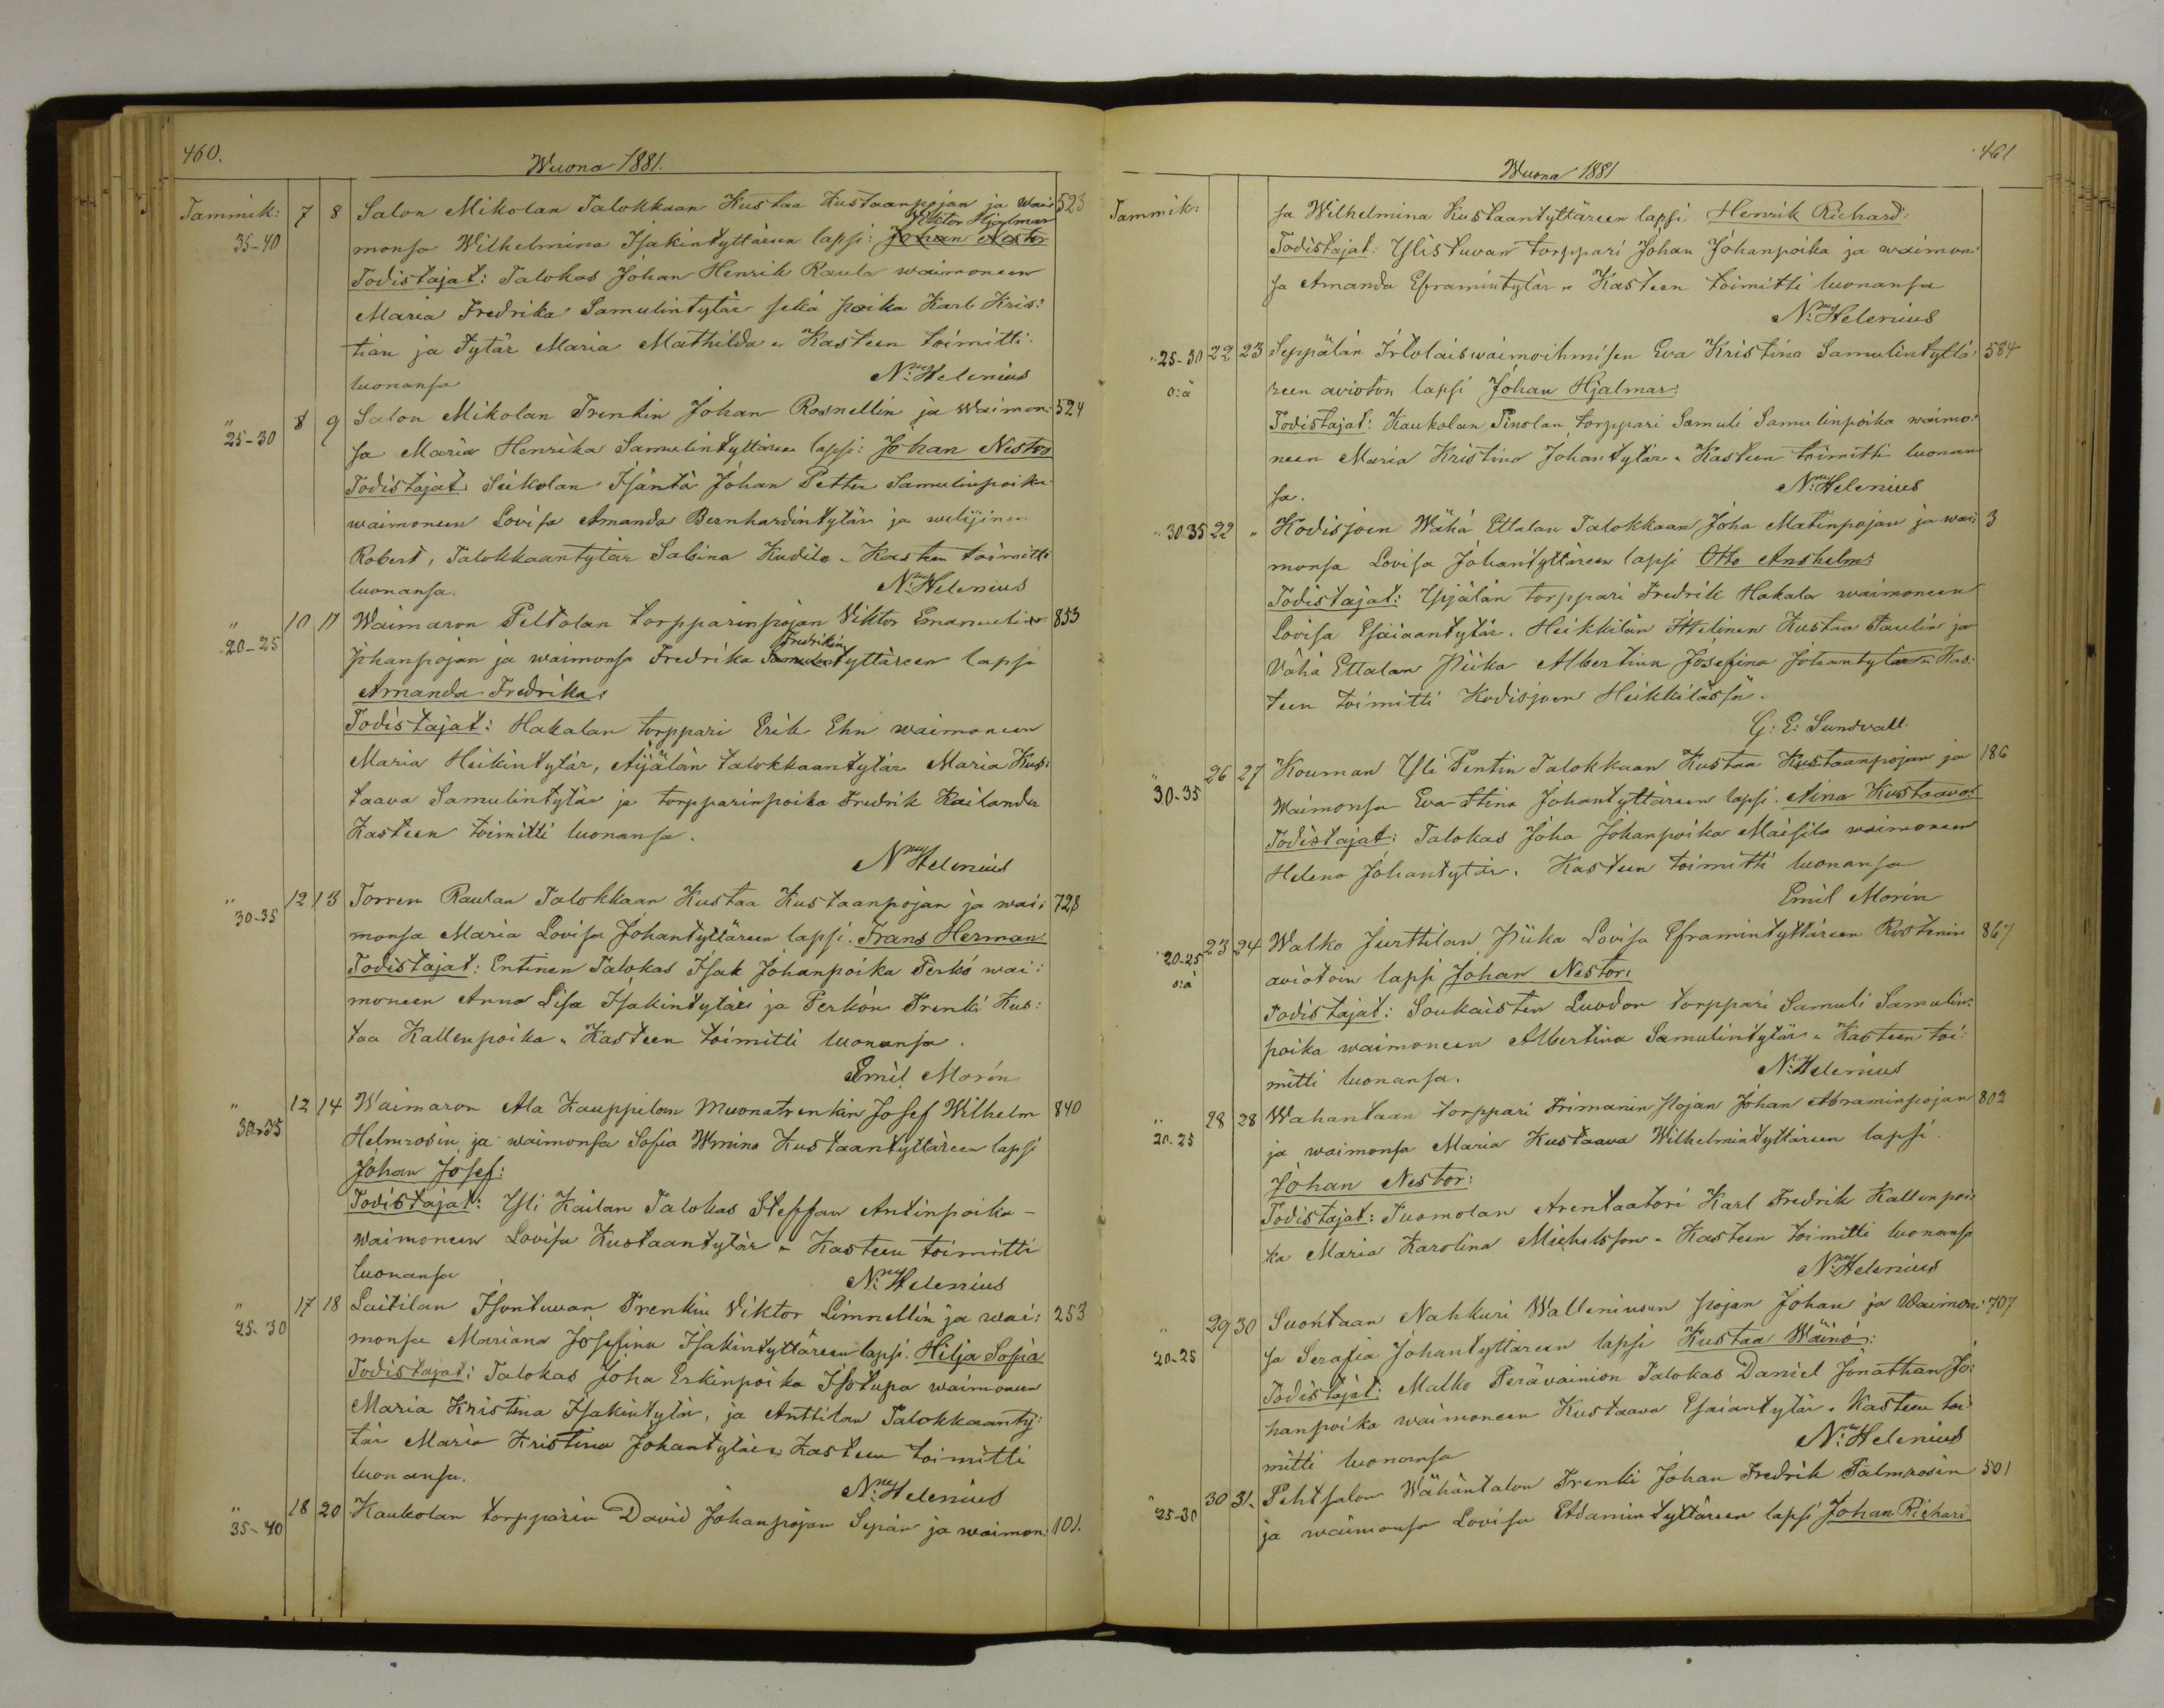 460.
Wuona 1881.
Tammik: 7 8 Salon Mikolan Talokkaan Kustaa Kustaanpojan ja Wai: 523
Viktor Hjalmar
35-40 monsa Wilhelmina Isakintyttäreen lapsi: Johan Nestor
Todistajat: Talokas Johan Henrik Raula waimoneen
Maria Fredrika Samulintytär sekä poika Karl Kris:
tian ja Tytär Maria Mathilda " Kasteen toimitti
luonansa N:my Helenius
" 25-30 8 9 Salon Mikolan Trenkin Johan Rosnellin ja Waimon: 524
sa Maria Henrika Samulintyttären lapsi: Johan Nestor
Todistajat: Seikolan Isäntä Johan Petter Samulinpoika
waimoneen Lovisa Amanda Bernhardintytär ja welijinen
Robert, Talokkaantytär Sabina Kudila " Kasteen toimitti
luonansa. N:my Helenius
" 20-25 10 11 Waimaron Peltolan torpparinpojan Viktor Emanuelin 853
Fredrikin
Johanpojan ja waimonsa Fredrika Samulintyttäreen lapsi
Amanda Fredrika:
Todistajat: Hakalan torppari Erik Ehn waimoneen
Maria Heikintytär, Äijälän talokkaantytär Maria Kus:
taava Samulintytär ja torpparinpoika Fredrik Kailander
Kasteen toimitti luonansa.
N my Helenius
" 30-35 12 13 Torren Raulan Talokkaan Kustaa Kustaanpojan ja wai: 728
monsa Maria Lovisa Johantyttäreen lapsi. Frans Herman:
Todistajat: Entinen Talokas Isak Johanpoika Perkö wai:
moneen Anna Lisa Isakintytär ja Perkön Trenki Kus:
taa Kallenpoika " Kasteen toimitti luonansa.
Emil Morin
" 30-35 12 14 Waimaron Ala Kauppilan Muonatrenkin Josef Wilhelm 840
Helmrosin ja waimonsa Sofia Wmina Kustaantyttäreen lapsi
Johan Josef:
Todistajat: Yli Kailan Talokas Steffan Antinpoika -
Waimoneen Lovisa Kustaantytär " Kasteen toimitti
luonansa N:my Helenius
" 25-30 17 18 Laitilan Isontuvan Trenkin Viktor Limnellin ja wai: 253
monsa Mariana Josefina Isakintyttäreen lapsi. Hilja Sofia
Todistajat: Talokas Joha Erkinpoika Isotupa waimoneen
Maria Kristina Isakintytär, ja Anttilan Talokkaanty:
tär Maria Kristina Johantytär " Kasteen toimitti
luonansa. N:my Helenius
" 35-40 18 20 Kaukolan torpparin David Johanpojan Sepän ja waimon: 101.
461
Wuona 1881
Tammik: sa Wilhelmina Kustaantyttäreen lapsi Henrik Richard:
Todistajat: Ylistuvan torppari Johan Johanpoika ja waimon:
sa Amanda Eframintytär " Kasteen toimitti luonansa
N:my Helenius
" 25-30 22 23 Seppälän Irtolaiswaimoihmisen Eva Kristina Samulintyttä: 584
o:ä reen avioton lapsi Johan Hjalmar:
Todistajat: Kaukolan Pinolan torppari Samuli Samulinpoika waimo:
neen Maria Kristina Johantytär " Kasteen toimitti luonan
sa. N:my Helenius
" 30-35 22 " Hodisjoen Wähä Ettalan Talokkaan Joha Matinpojan ja wai: 3
monsa Lovisa Johantyttäreen lapsi Otto Anshelm:
Todistajat: Ypjälän torppari Fredrik Hakala waimoneen
Lovisa Esaiaantytär. Heikkilän Itselinen Kustaa Paulin ja
Vähä Ettalan Piika Albertina Josefina Johantytär " Kas:
teen toimitti Kodisjoen Heikkilässä.
G: E: Sundvall.
" 30-35 26 27 Kouman Yli Pentin Talokkaan Kustaa Kustaanpojan ja 186
Waimonsa Eva Stina Johantyttäreen lapsi. Aina Kustaava:
Todistajat: Talokas Joha Johanpoika Maisila waimoneen
Helena Johantytär. Kasteen toimitti luonansa
Emil Morin
" 20-25 23 24 Walko Jurttilan Piika Lovisa Eframintyttäreen Rostenin 867
o:ä aviotoin lapsi Johan Nestor:
Todistajat: Soukaisten Luodon torppari Samuli Samulin:
poika waimoneen Albertina Samulintytär " Kasteen toi:
mitti luonansa. N: Helenius
" 20-25 28 28 Wahantaan torppari Frimanin Pojan Johan Abraminpojan 802
ja waimonsa Maria Kustaava Wilhelmintyttäreen lapsi.
Johan Nestor:
Todistajat: Tuomolan Arentaatori Karl Fredrik Kallenpoi:
ka Maria Karolina Michelsson " Kasteen toimitti luonansa
N:my Helenius
" 20-25 29 30 Suontaan Nahkuri Walleniusen pojan Johan ja Waimon: 707
sa Serafia Johantyttäreen lapsi Kustaa Wäinö:
Todistajat: Malko Perävainion Talokas Daniel Jonathan Jo:
hanpoika waimoneen Kustaava Esaiantytär " Kasteen toi:
mitti luonansa N:my Helenius
" 25-30 30 31. Pehtsalon Wähäntalon Trenki Johan Fredrik Palmrosin 501
ja waimonsa Lovisa Adamintyttäreen lapsi Johan Richard